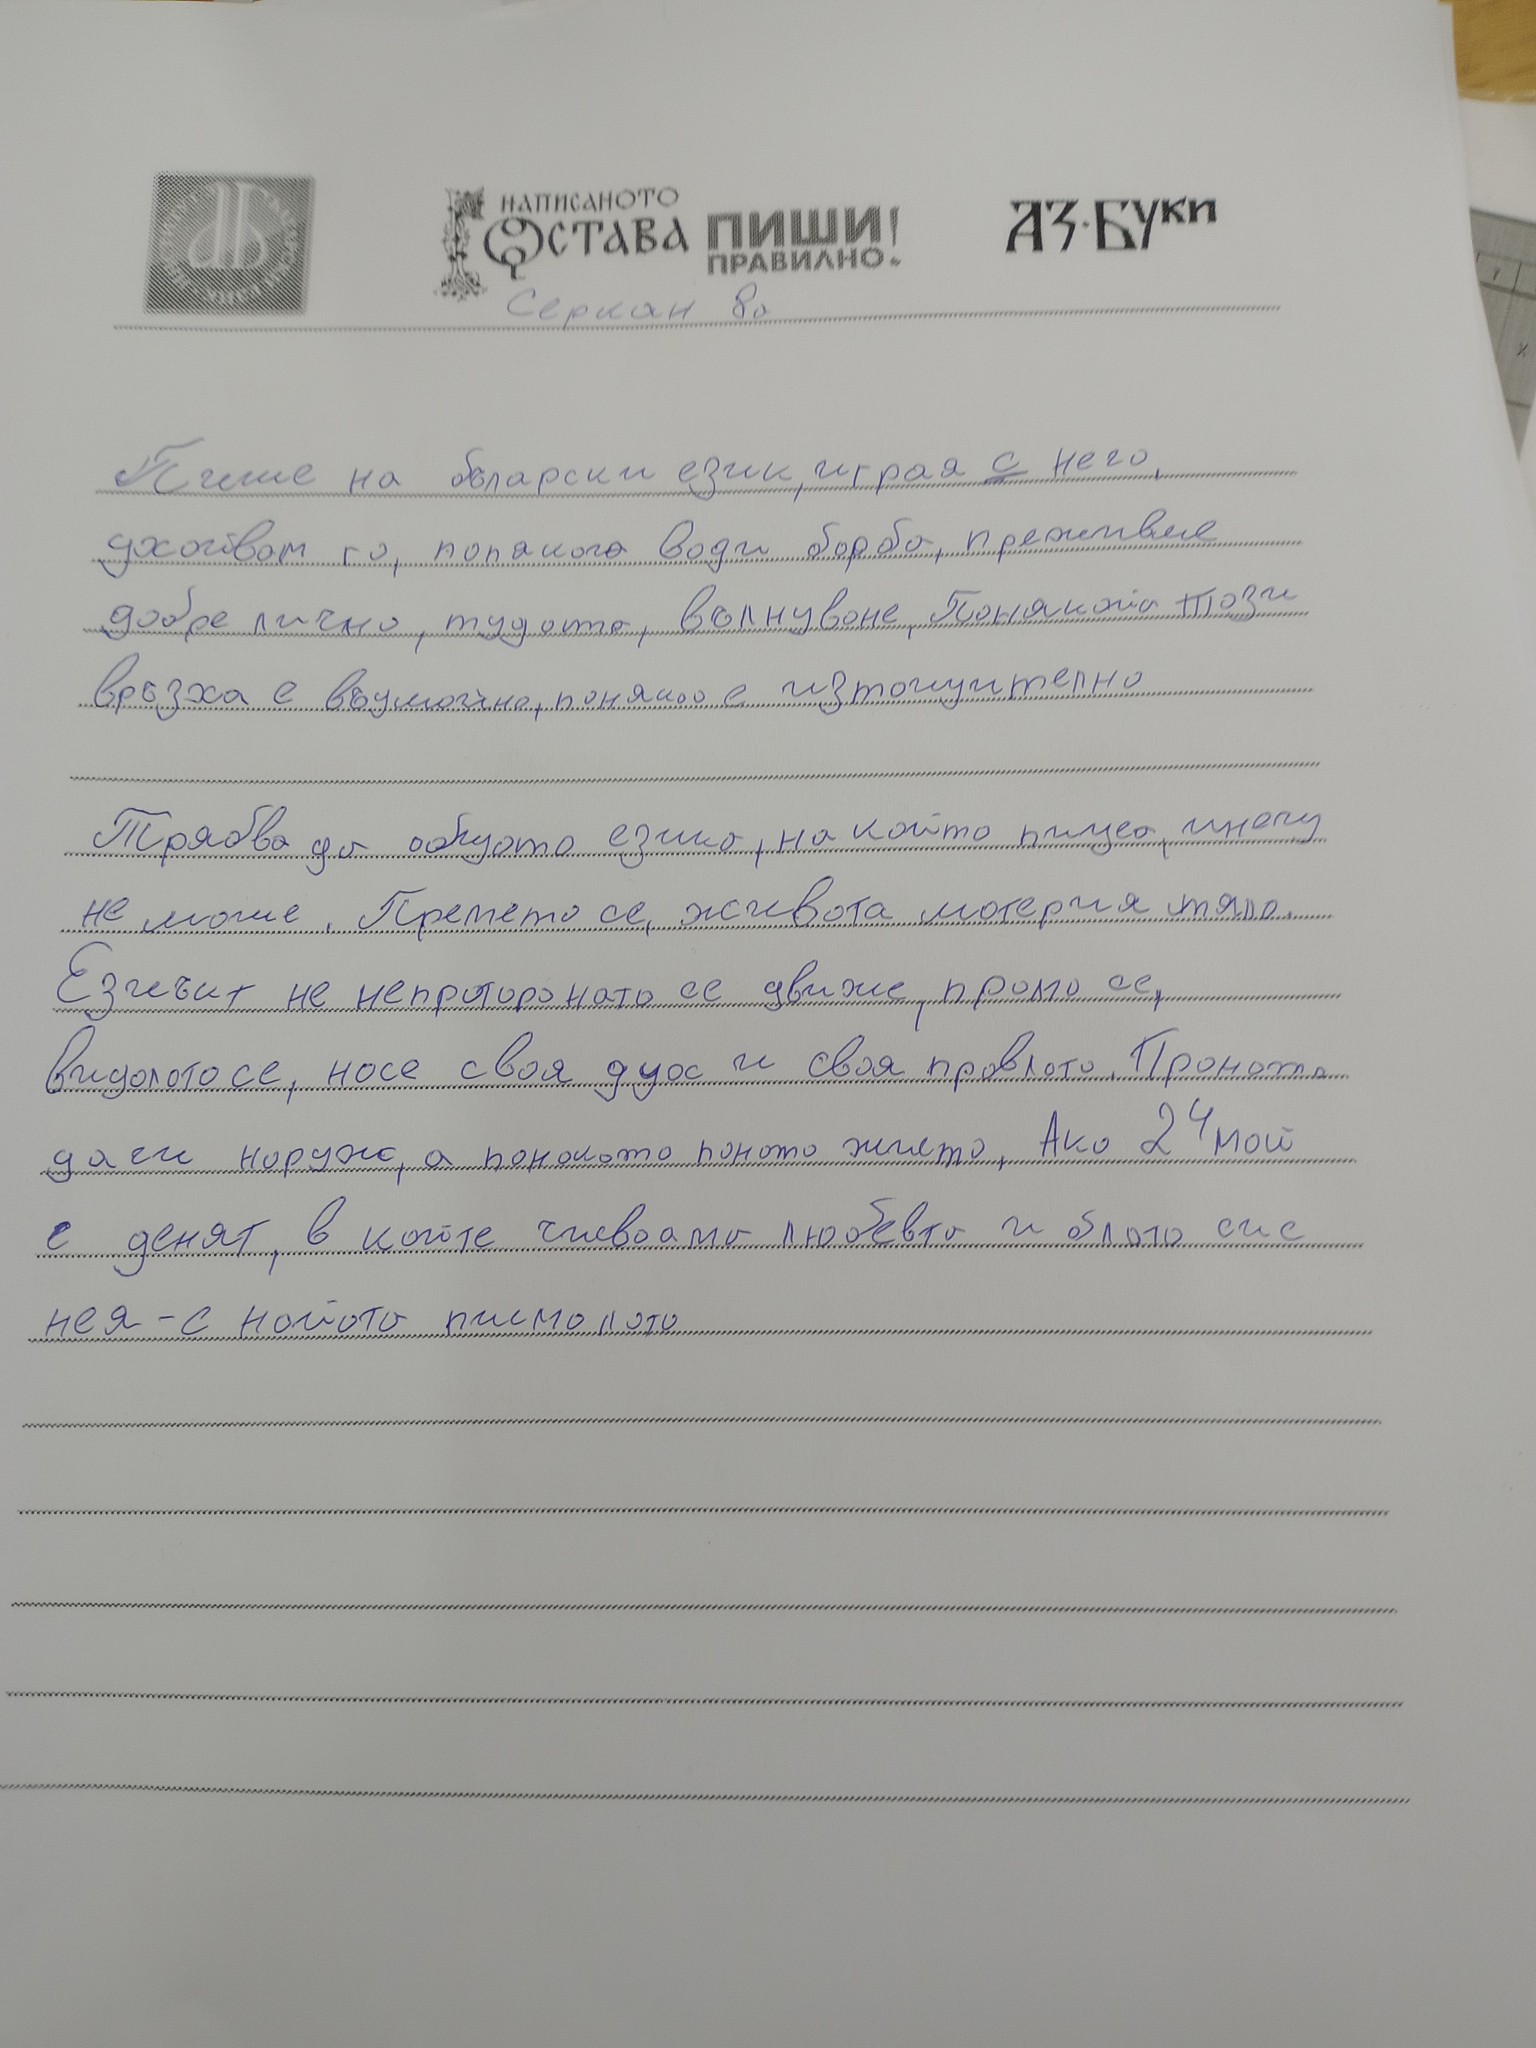 НАПИСАНОТО
ОСТАВА
ПИШИ
ПРАВИЛНО!
АЗ·БУКИ
Серкан 8а
Пише на бъларски език, играя с него,
го, попякога води борба, преживее
добре лично, тудото, вълнуване, Понякога този
връзха е въумойно, поняко е изтощително
Трябва да обкуото езико, на който пишео, иначу
не може. Премето се, живота материя тяло.
Езичът не непроторонато се движе, промо се,
видолотосе, носе своя дуос и своя провлото. Проното
дали наруже, а понокото поното жилето, Ако 24 мой
е денят, в койте любевто и блото сис
нея - с нойото писмолото